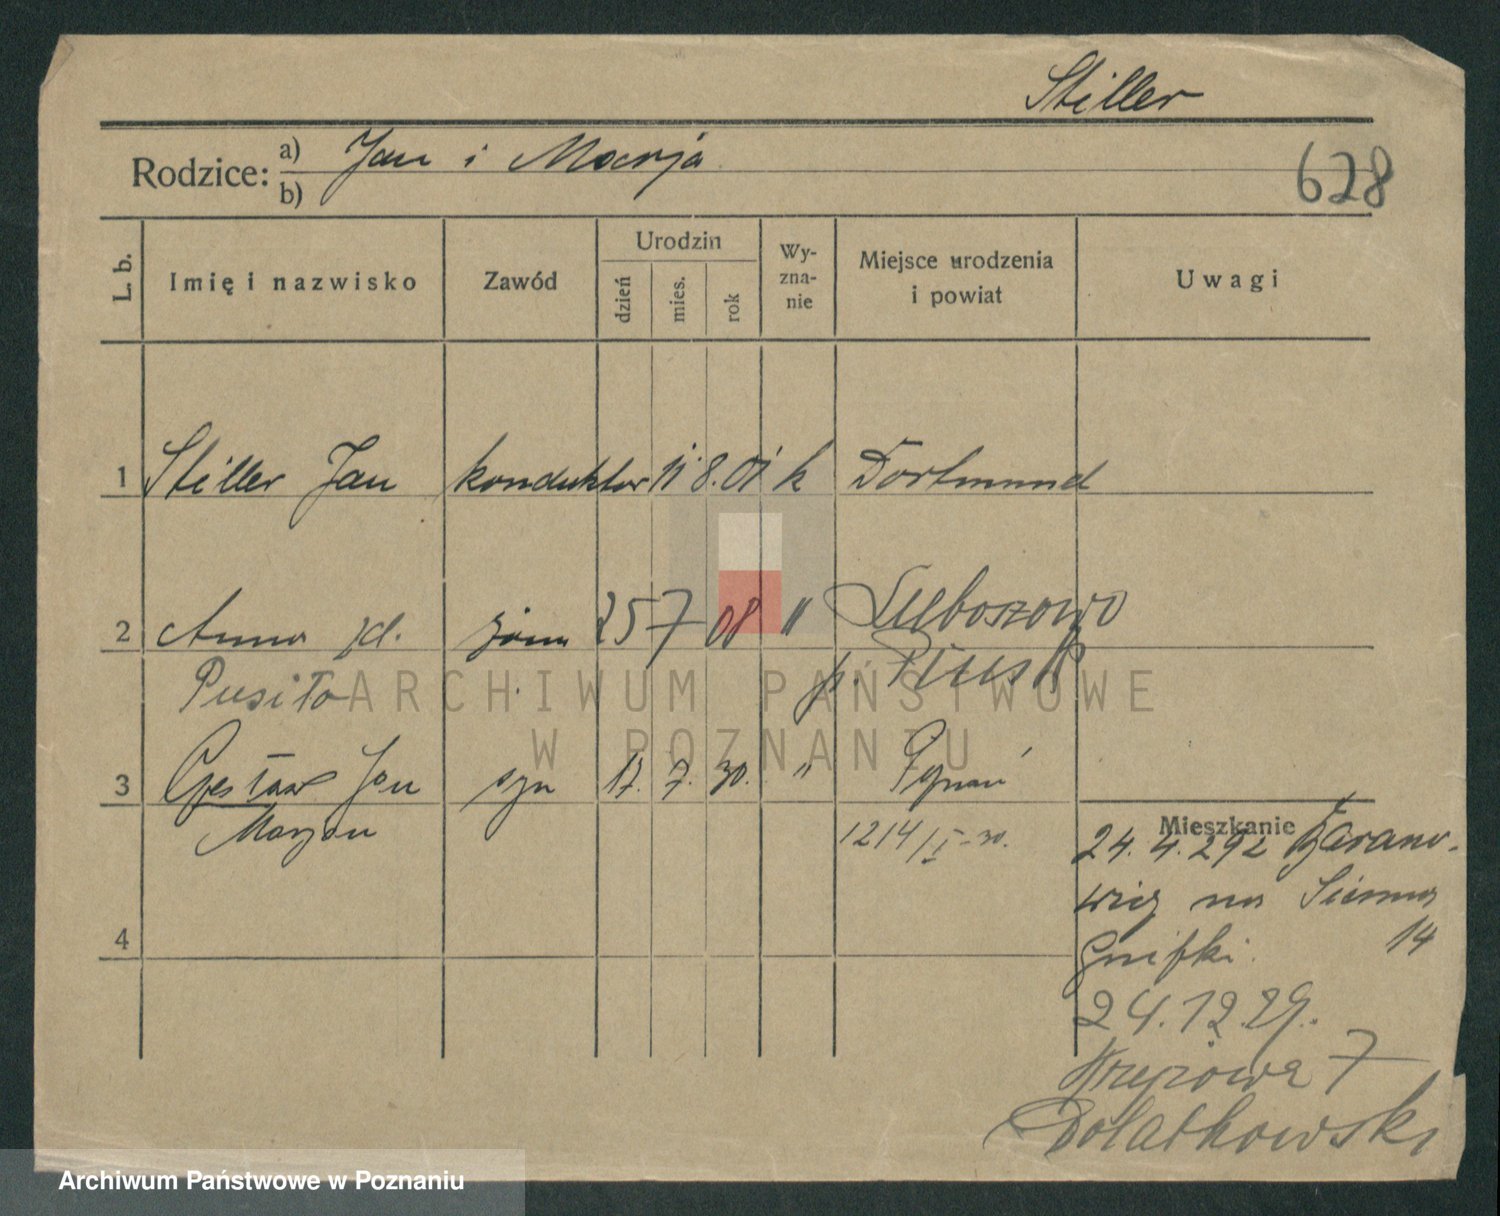 Stiller
Rodzice: a) Jan i Marja
b)
628
L. b.
Imię i nazwisko
Zawód
Urodzin
dzień
mies.
rok
Wy-
zna-
nie
Miejsce urodzenia
i powiat
Uwagi
1 Stiller Jan konduktor 11 8. 01 k Dortmund
2 Anna zd. żona 25 7 08 " Luboszowo
Pusiło p.
ARCHIWUM PAŃSTWOWE
W POZNANIU
3 Czesław Jan syn 17. 7. 30. " Poznań
Marjan 1214/I-30.
Mieszkanie
24. 4. 29z Baranu-
wicz na Sienna
Gnifki. 14
4
24.12.29.
Krzyżowa 7
Dolatkowski
Archiwum Państwowe w Poznaniu